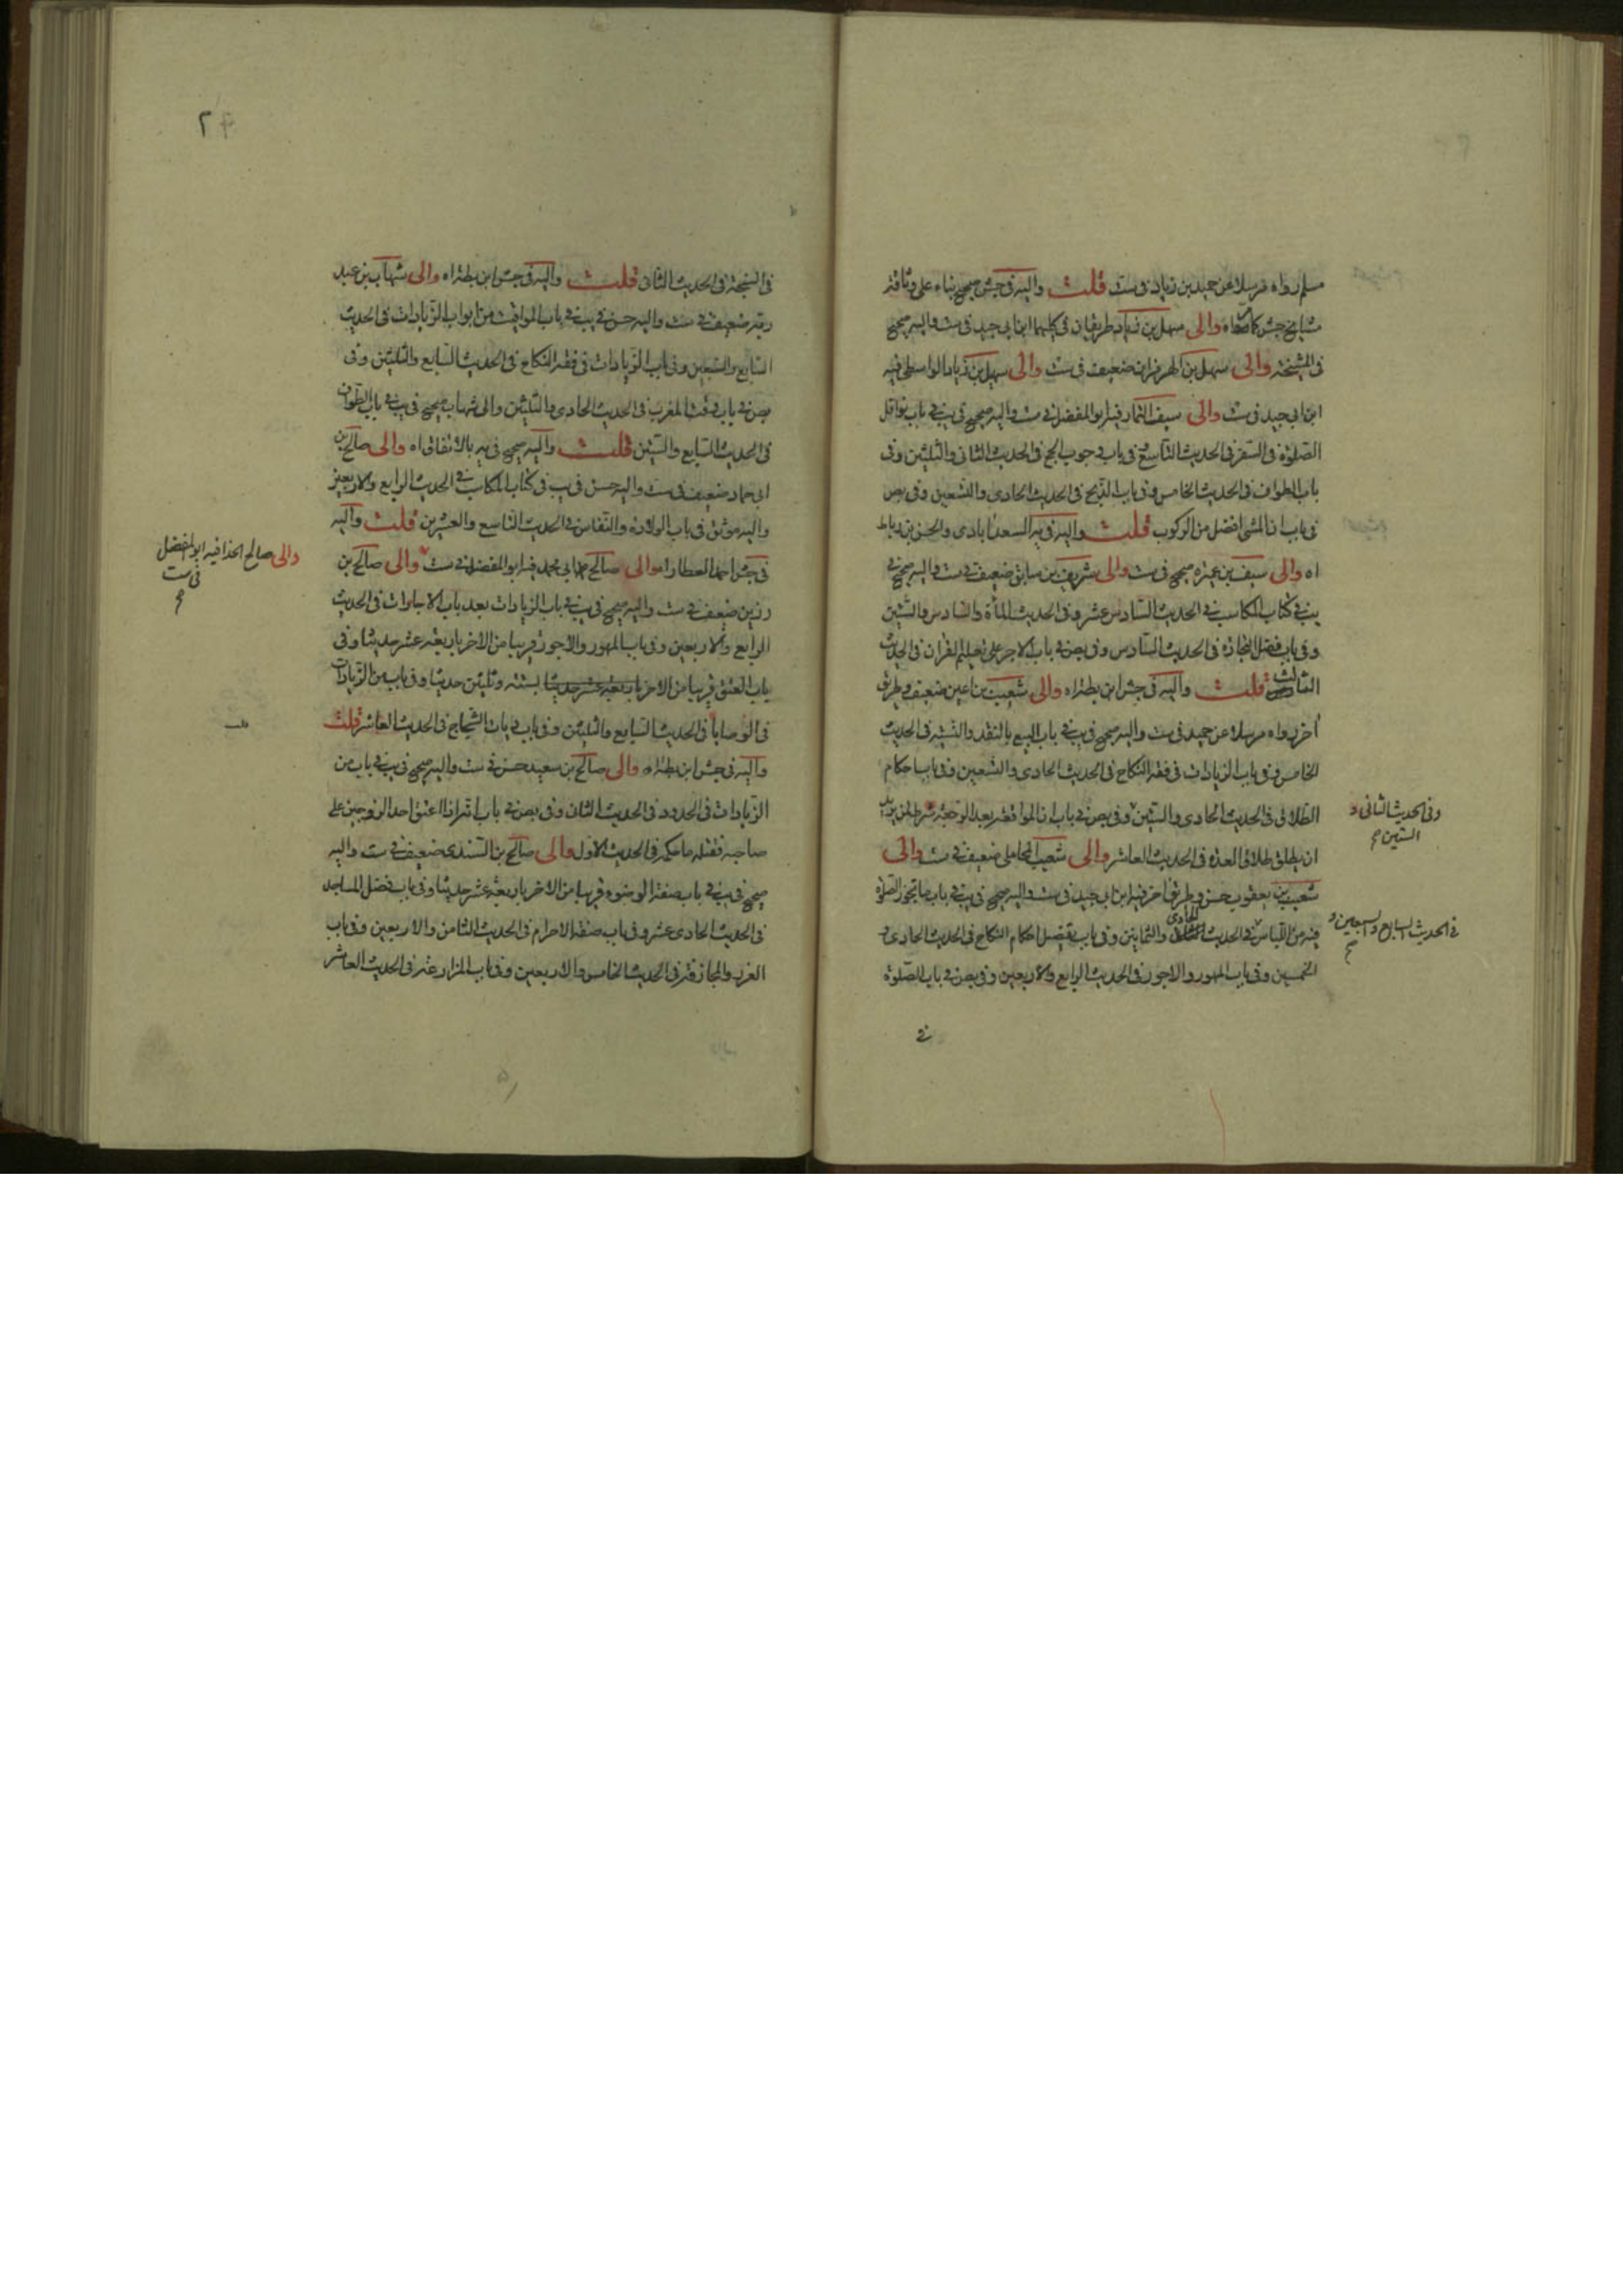 مسلم رواه مرسلا عن حميد بن زياد في ست قلت واليه في جش صحيح بناء على وثاقة
مشايخ جش كما صفاه والى سهل بن زياد طريقان في كليهما ابن ابي جيد في ست واليه صحيح
في المشيخة والى سهل بن الهرمزان ضعيف في ست والى سهل بن زياد الواسطي فيه
ابن ابي جيد في ست والى سيف التمار فيه ابو المفضل في ست واليه صحيح في يب في باب نوافل
الصلوة في السفر في الحديث التاسع في باب وجوب الحج في الحديث الثاني والثلثين وفي
باب الطواف في الحديث الخامس وفي باب الذبح في الحديث الحادي والتسعين وفي بص
في باب ان المشي افضل من الركوب قلت واليه في يه السعدابادي والحسن بن رباط
اه والى سيف بن عميرة صحيح في ست والى شريف بن سابق ضعيف في ست واليه صحيح في
يب في كتاب المكاسب في الحديث السادس عشر وفي الحديث المأة والسادس والستين
وفي باب فضل التجارة في الحديث السادس وفي بص في باب الاجر على تعليم القران في الحديث
الثالث قلت واليه في جش ابن بطة اه والى شعيب بن اعين ضعيف وطريق
اخر رواه مرسلا عن حميد في ست واليه صحيح في يب في باب البيع بالنقد والنسية في الحديث
الخامس وفي باب الزيادات في فقه النكاح في الحديث الحادي والتسعين وفي باب احكام
الطلاق في الحديث الحادي والستين وفي بص في باب ان المواقعة بعد الرجعة شرط لمن يريد
ان يطلق طلاق العدة في الحديث العاشر والى شعيب المحاملي ضعيف في ست والى
شعيب بن يعقوب حسن وطريق اخر فيه ابن ابي جيد في ست واليه صحيح في يب في باب ما تجوز الصلوة
فيه من اللباس في الحديث الحادي والثمانين وفي باب تفصيل احكام النكاح في الحديث الحادي و
الخمسين وفي باب المهور والاجور في الحديث الرابع والاربعين وفي بص في باب الصلوة
في
وفي الحديث الثاني و
الستين صح
في الحديث السابع والسبعين و
صح
٢٤
في السنجة في الحديث الثاني قلت واليه في جش ابن بطة اه والى شهاب بن عبد
ربه ضعيف في ست واليه حسن في يب في باب المواقيت من ابواب الزيادات في الحديث
السابع والتسعين وفي باب الزيادات في فقه النكاح في الحديث السابع والثلثين وفي
بص في باب وقت المغرب في الحديث الحادي والثلثين والى شهاب صحيح في يب في باب الطواف
في الحديث السابع والستين قلت واليه صحيح في يه بالاتفاق اه والى صالح بن
ابي حماد ضعيف في ست واليه حسن في يب في كتاب المكاسب في الحديث الرابع والاربعين
واليه موثق في باب الولادة والنفاس في الحديث التاسع والعشرين قلت واليه
في جش احمد العطار اه والى صالح ابي محمد فيه ابو المفضل في ست والى صالح بن
رزين ضعيف في ست واليه صحيح في يب في باب الزيادات بعد باب الاجارات في الحديث
الرابع والاربعين وفي باب المهور والاجور قريبا من الاخر باربعة عشر حديثا وفي
باب العتق قريبا من الاخر باربعة عشر حديثا بستة وثلثين حديثا وفي باب من الزيادات
في الوصايا في الحديث السابع والثلثين وفي باب ديات الشجاج في الحديث العاشر قلت
واليه في جش ابن بطة اه والى صالح بن سعيد حسن في ست واليه صحيح في يب في باب من
الزيادات في الحدود في الحديث الثاني وفي بص في باب انه اذا اعتق احد الزوجين على
صاحبه فقتله ما حكمه في الحديث الاول والى صالح بن السندي ضعيف في ست واليه
صحيح في يب في باب صفة الوضوء قريبا من الاخر باربعة عشر حديثا وفي باب فضل المساجد
في الحديث الحادي عشر وفي باب صفة الاحرام في الحديث الثامن والاربعين وفي باب
الغرر والمجازفة في الحديث الخامس والاربعين وفي باب المزارعة في الحديث العاشر
والى صالح الحذا فيه ابو المفضل
في ست
صح